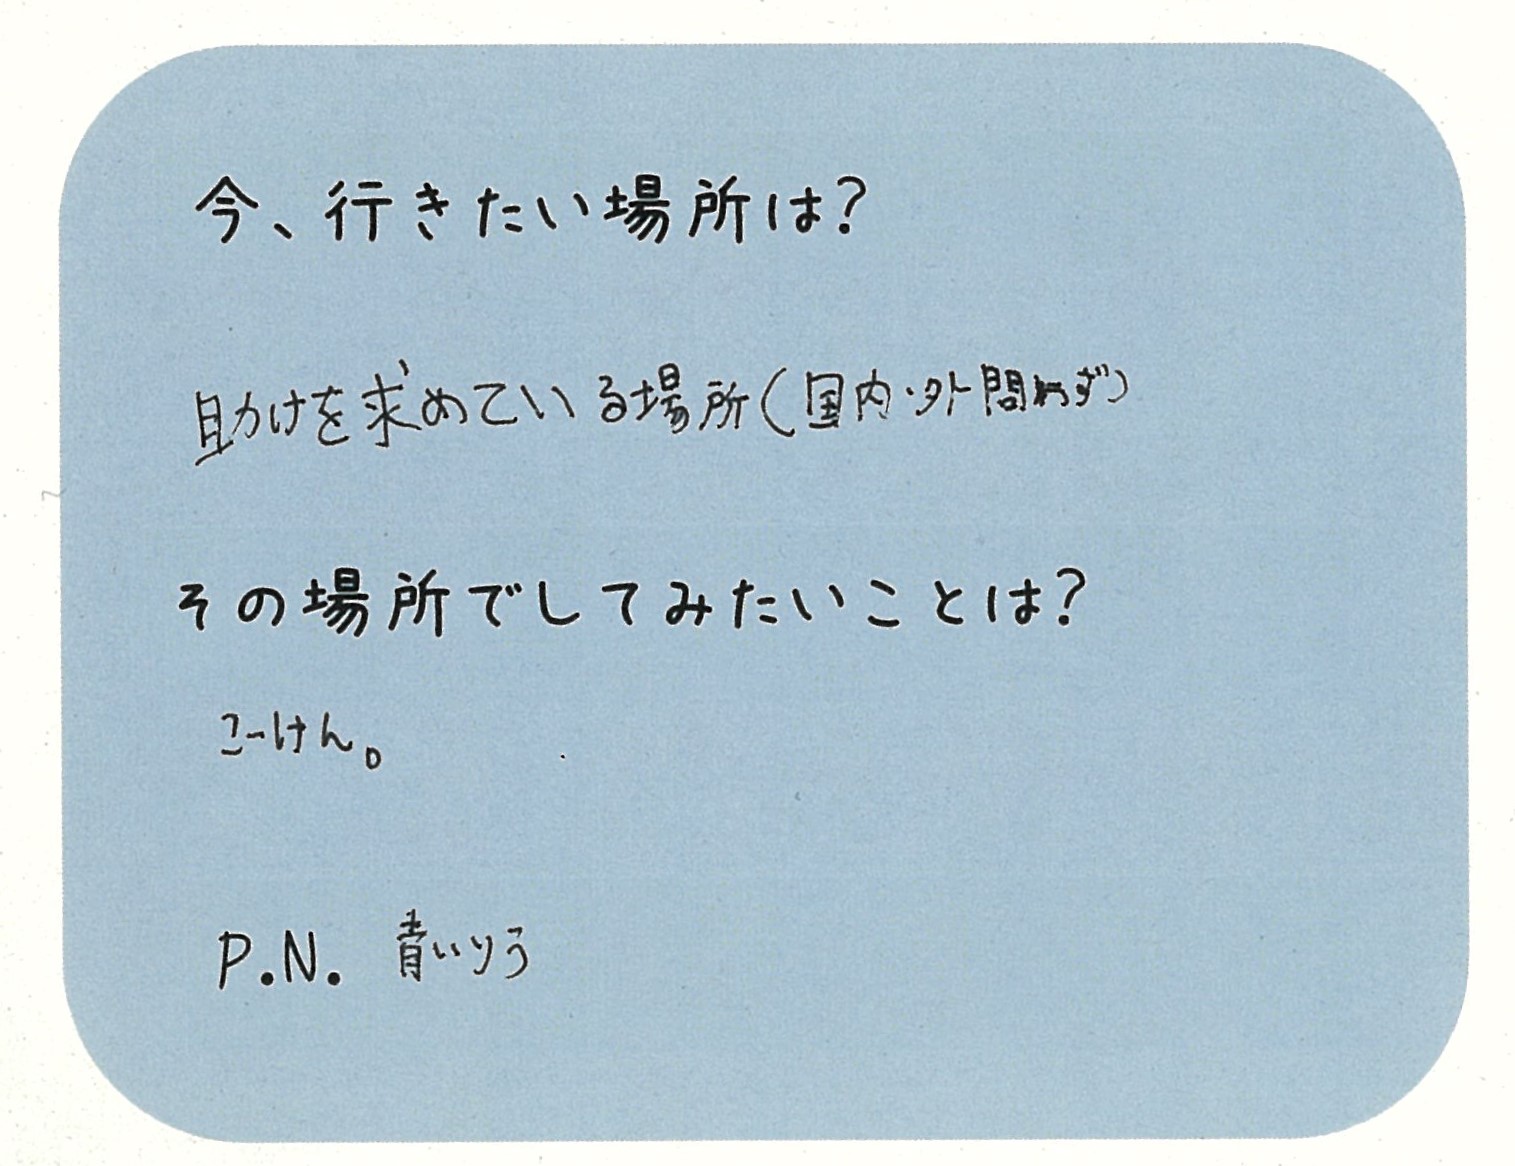 今、行きたい場所は?
助けを求めている場所(国内・外問わず)
その場所でしてみたいことは?
こーけん。
P.N. 青いりう